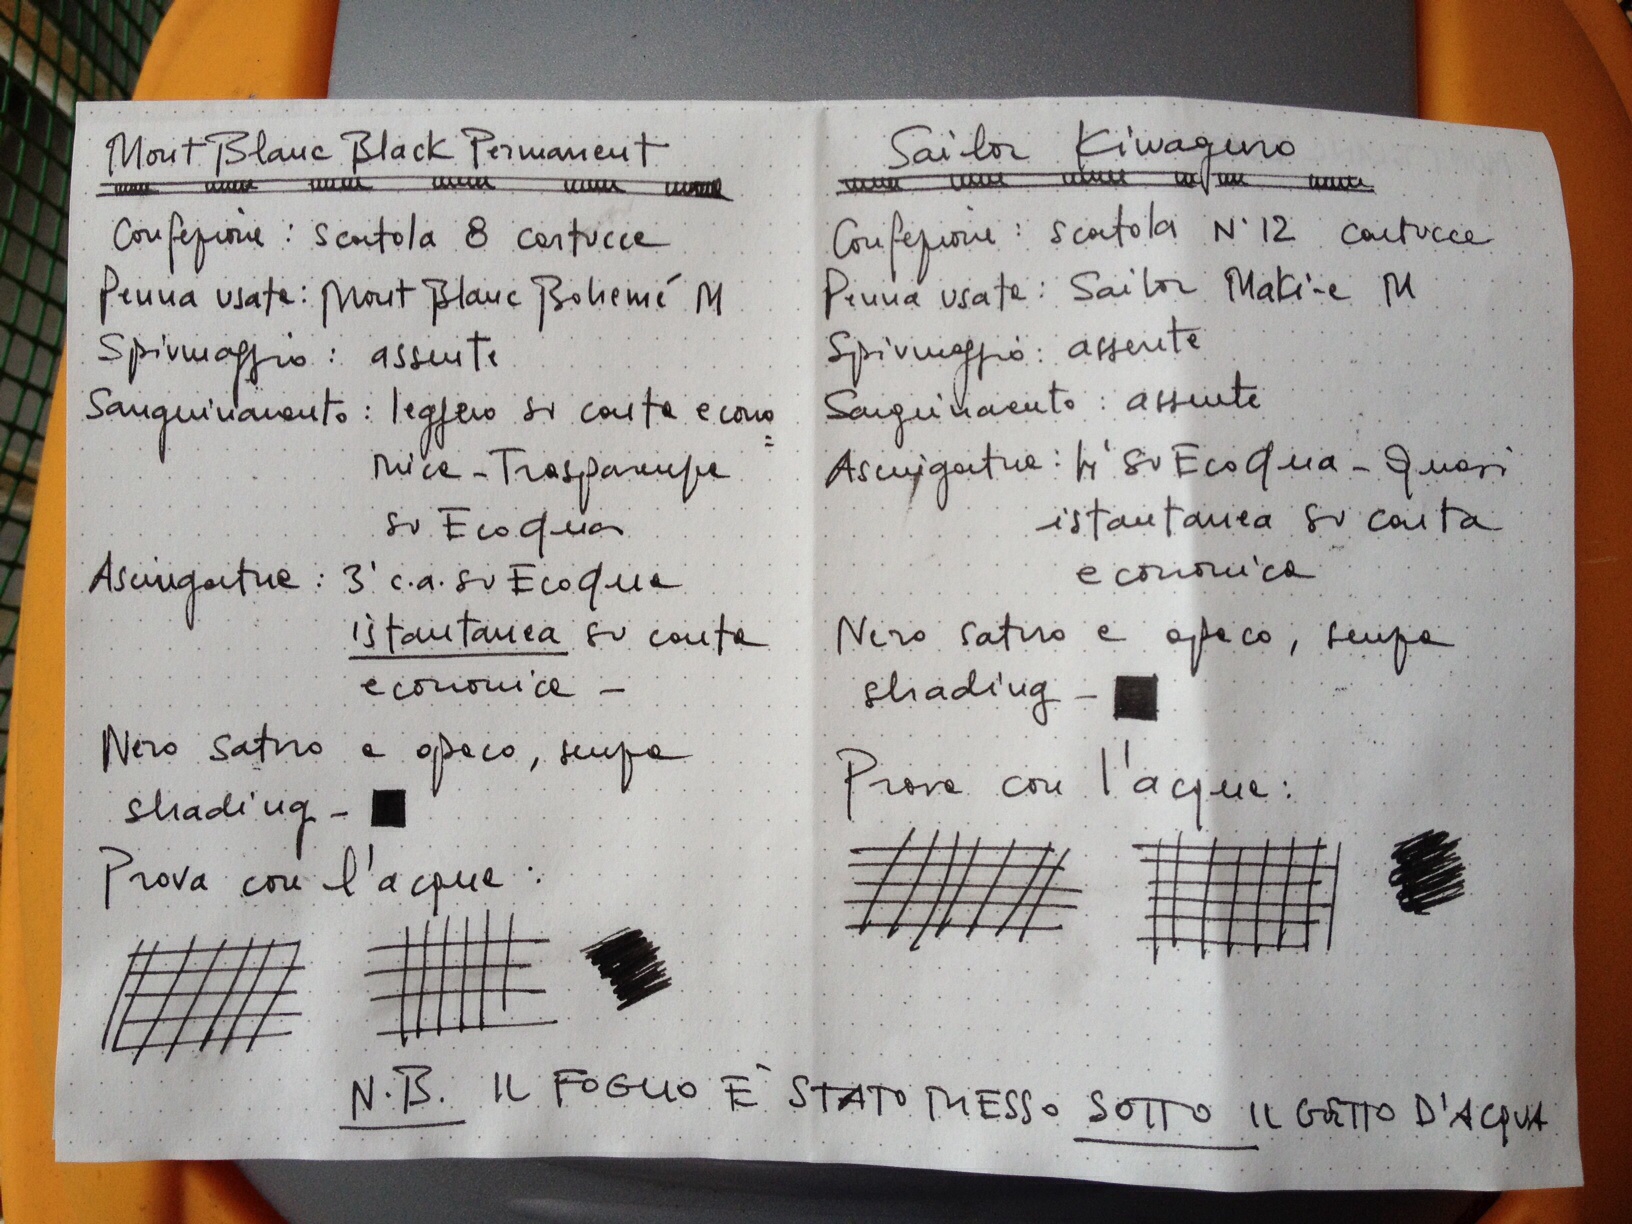 Mont Blanc Black Permanent
Confezione : scatola 8 cartucce
Penna usata : Mont Blanc Bohemé M
Spiumaggio : assente
Sanguinamento : leggero su carta econo=
mica - Trasparenza
su EcoQua
Asciugatura : 3' c.a. su EcoQua
istantanea su carta
economica -
Nero saturo e opaco, senza
shading -
Prova con l'acqua :
Sailor Kiwaguro
Confezione : scatola N° 12 cartucce
Penna usata : Sailor Maki-e M
Spiumaggio : assente
Sanguinamento : assente
Asciugatura : 4' su EcoQua - Quasi
istantanea su carta
economica
Nero saturo e opaco, senza
shading -
Prova con l'acqua :
N.B. IL FOGLIO E' STATO MESSO SOTTO IL GETTO D'ACQUA